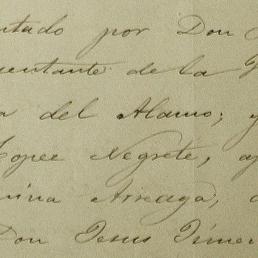 ntado por Don
sentante de la
a del Alamo; y
Lopez Negrete, a
nina Arreaga,
Don Jesus Jimen